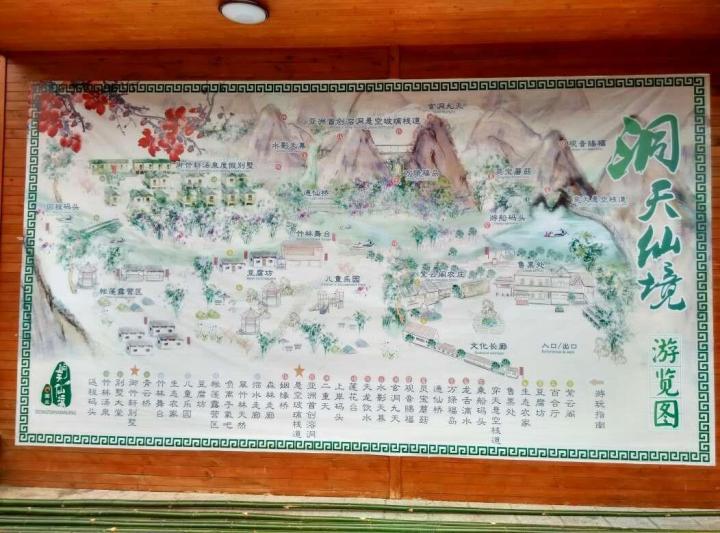 洞天仙境
游览图
玄洞九天
亚洲首创溶洞悬空玻璃栈道
水影天幕
观音赐福
御竹轩汤泉度假别墅
万缘福岛
灵宝蘑菇
通仙桥
穿天悬空栈道
游船码头
竹林舞台
豆腐坊
儿童乐园
紫云阁农庄
售票处
帐篷露营区
文化长廊
入口/出口
游玩指南
紫云阁
百合厅
豆腐坊
生态农家
售票处
穿天悬空栈道
乘船码头
龙舌滴水
万缘福岛
通仙桥
灵宝蘑菇
观音赐福
玄洞九天
水影天幕
天龙饮水
莲花台
上岸码头
二重天
亚洲首创溶洞
悬空玻璃栈道
姻缘桥
森林走廊
临水走廊
翠竹林天然
负离子氧吧
帐篷露营区
豆腐坊
儿童乐园
生态农家
竹林舞台
青云桥
御竹轩别墅
别墅大堂
竹林汤泉
返程码头
洞天仙境